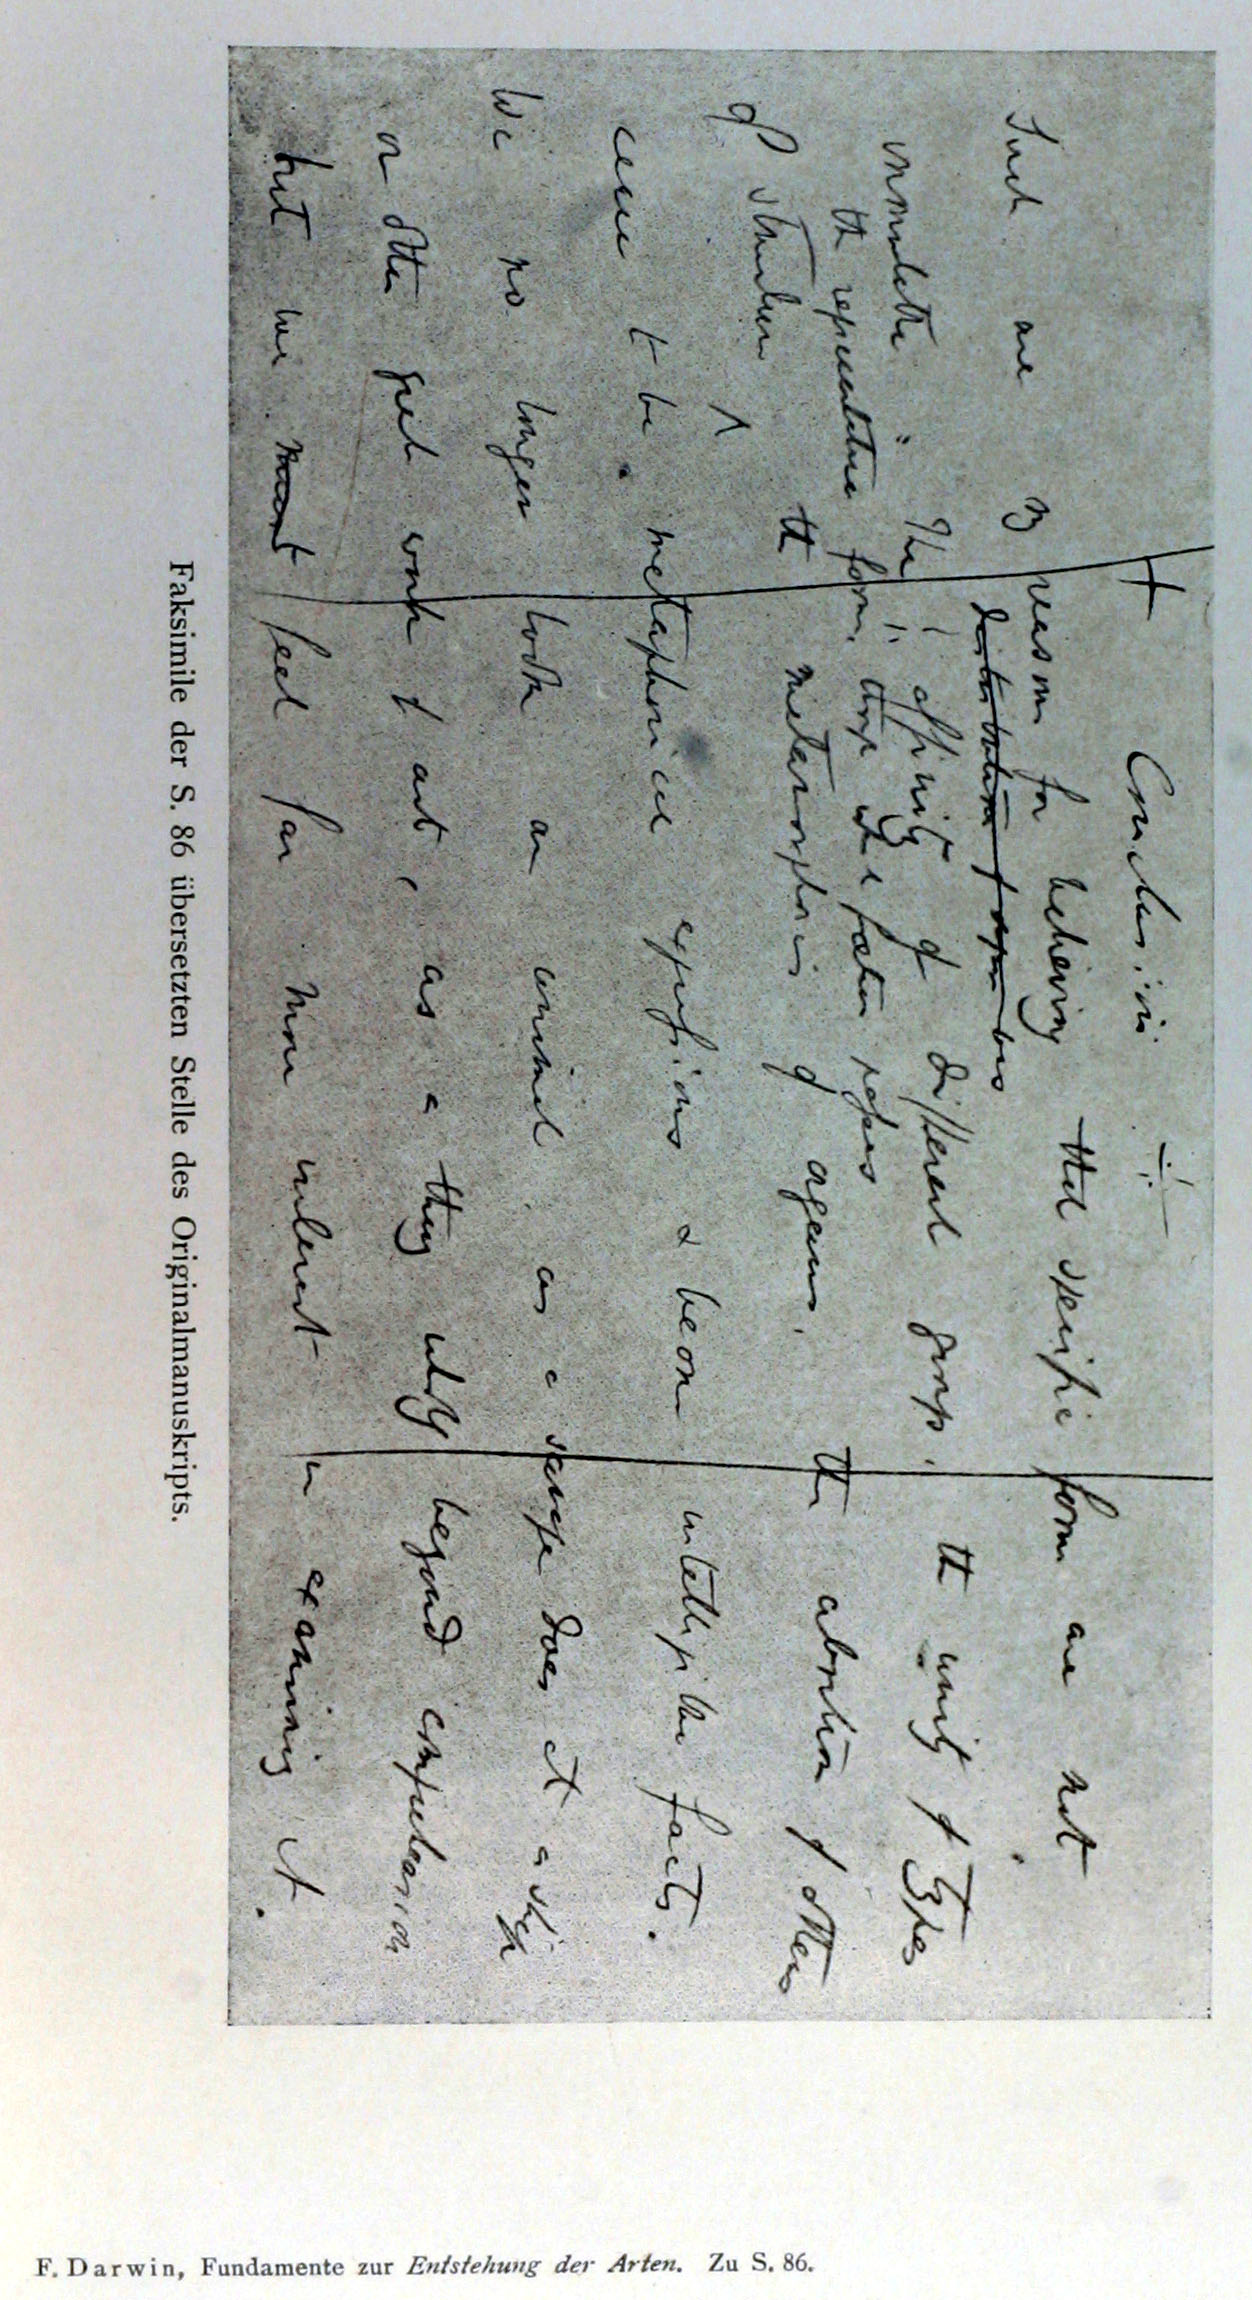 Conclusion
Such are my reasons for believing that specific forms are not
immutable. The affinity of different groups, the unity of types
the representative forms through which foetus passes
of structure the metamorphosis of organs, the abortion of others
cease to be metaphorical expressions & become intelligible facts.
We no longer look on animal as a savage does at a ship
or other great work of art, as a thing wholly beyond comprehension
but we feel far more interest in examining it.
Faksimile der S. 86 übersetzten Stelle des Originalmanuskripts.
F. Darwin, Fundamente zur Entstehung der Arten. Zu S. 86.